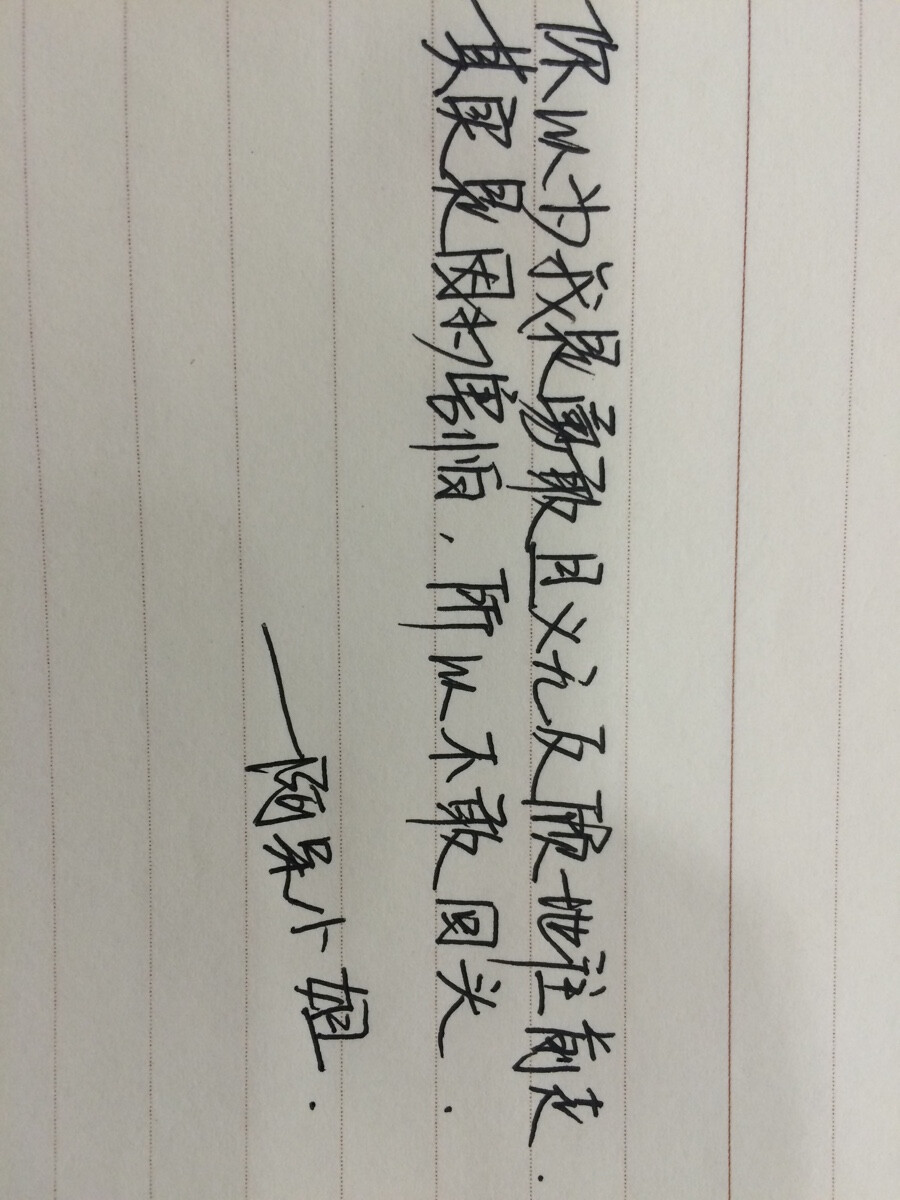 你以为我是勇敢且义无反顾地往前走.
其实是因为害怕,所以不敢回头.
——陶呆小姐.